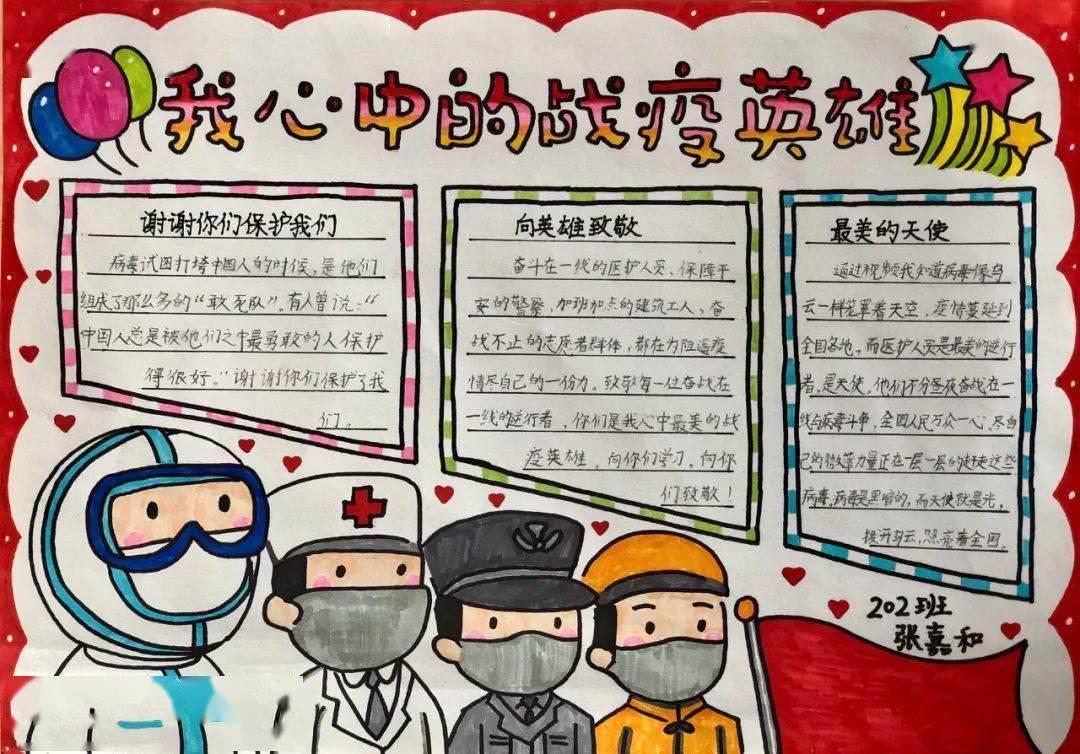 我心中的战疫英雄
谢谢你们保护我们
病毒试图打垮中国人的时候,是他们
组成了那么多的“敢死队”。有人曾说:“
中国人总是被他们之中最勇敢的人保护
得很好。”谢谢你们保护了我
们。
向英雄致敬
奋斗在一线的医护人员、保障平
安的警察、加班加点的建筑工人、奋
战不止的志愿者群体,都在为阻遏疫
情尽自己的一份力。致敬每一位奋战在
一线的逆行者,你们是我心中最美的战
疫英雄。向你们学习。向你
们致敬!
最美的天使
通过视频我知道病毒像乌
云一样笼罩着天空。疫情蔓延到
全国各地。而医护人员是最美的逆行
者,是天使。他们不分昼夜奋战在一
线与病毒斗争,全国人民万众一心、尽自
己的微薄力量正在一层一层的
这些
病毒。病毒是黑暗的,而天使就是光。
拨开乌云,照亮着全国。
202班
张嘉和